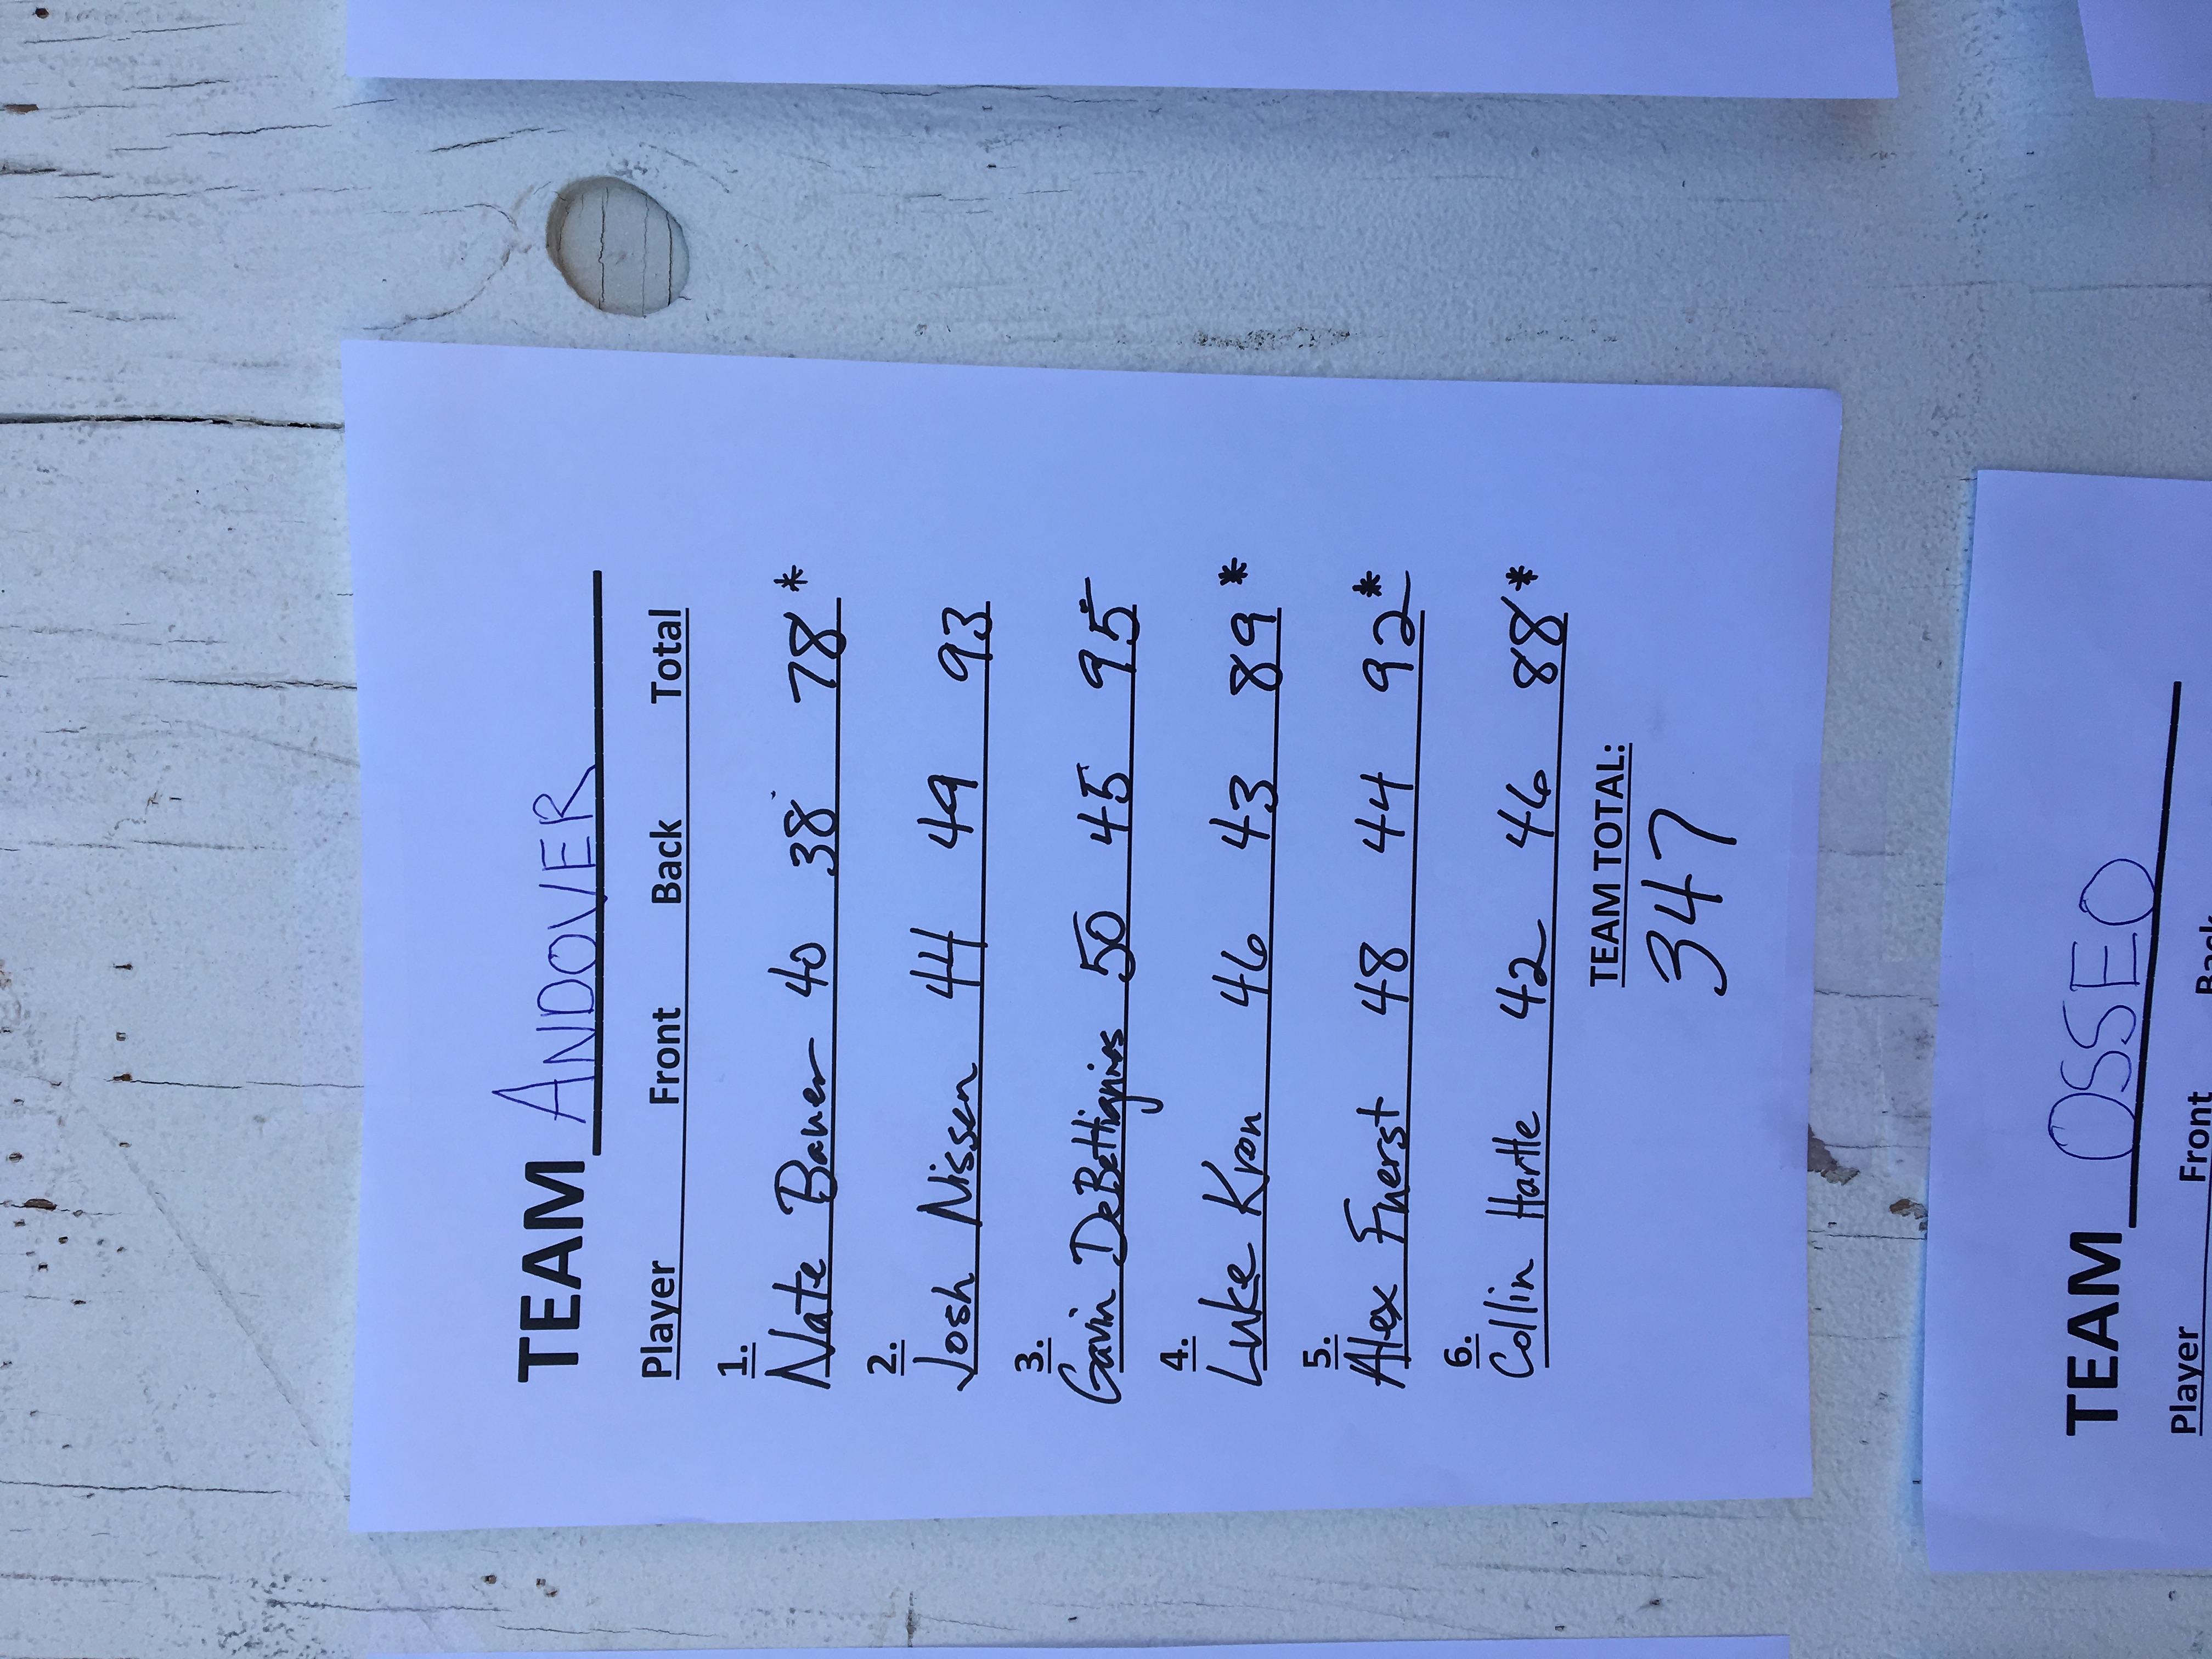 TEAM ANDOVER
Player Front Back Total
1.
Nate Bauer 40 38 78*
2.
Josh Nissen 44 49 93
3.
Gavin DeBettignies 50 45 95
4.
Luke Kron 46 43 89*
5.
Alex Fuerst 48 44 92*
6.
Collin Hartle 42 46 88*
TEAM TOTAL:
347
TEAM OSSEO
Player Front Back